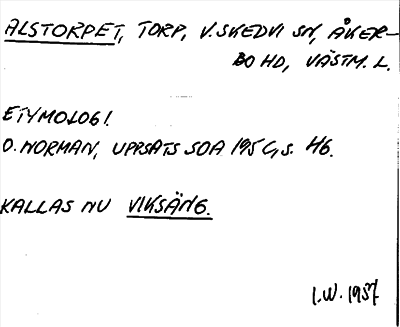 ALSTORPET, TORP, V. SKEDVI SN, ÅKER-
BO HD, VÄSTM. L.
ETYMOLOGI.
O. NORMAN, UPPSATS SOA 195 , s. 46.
KALLAS NU VIKSÄNG.
I.W. 1957